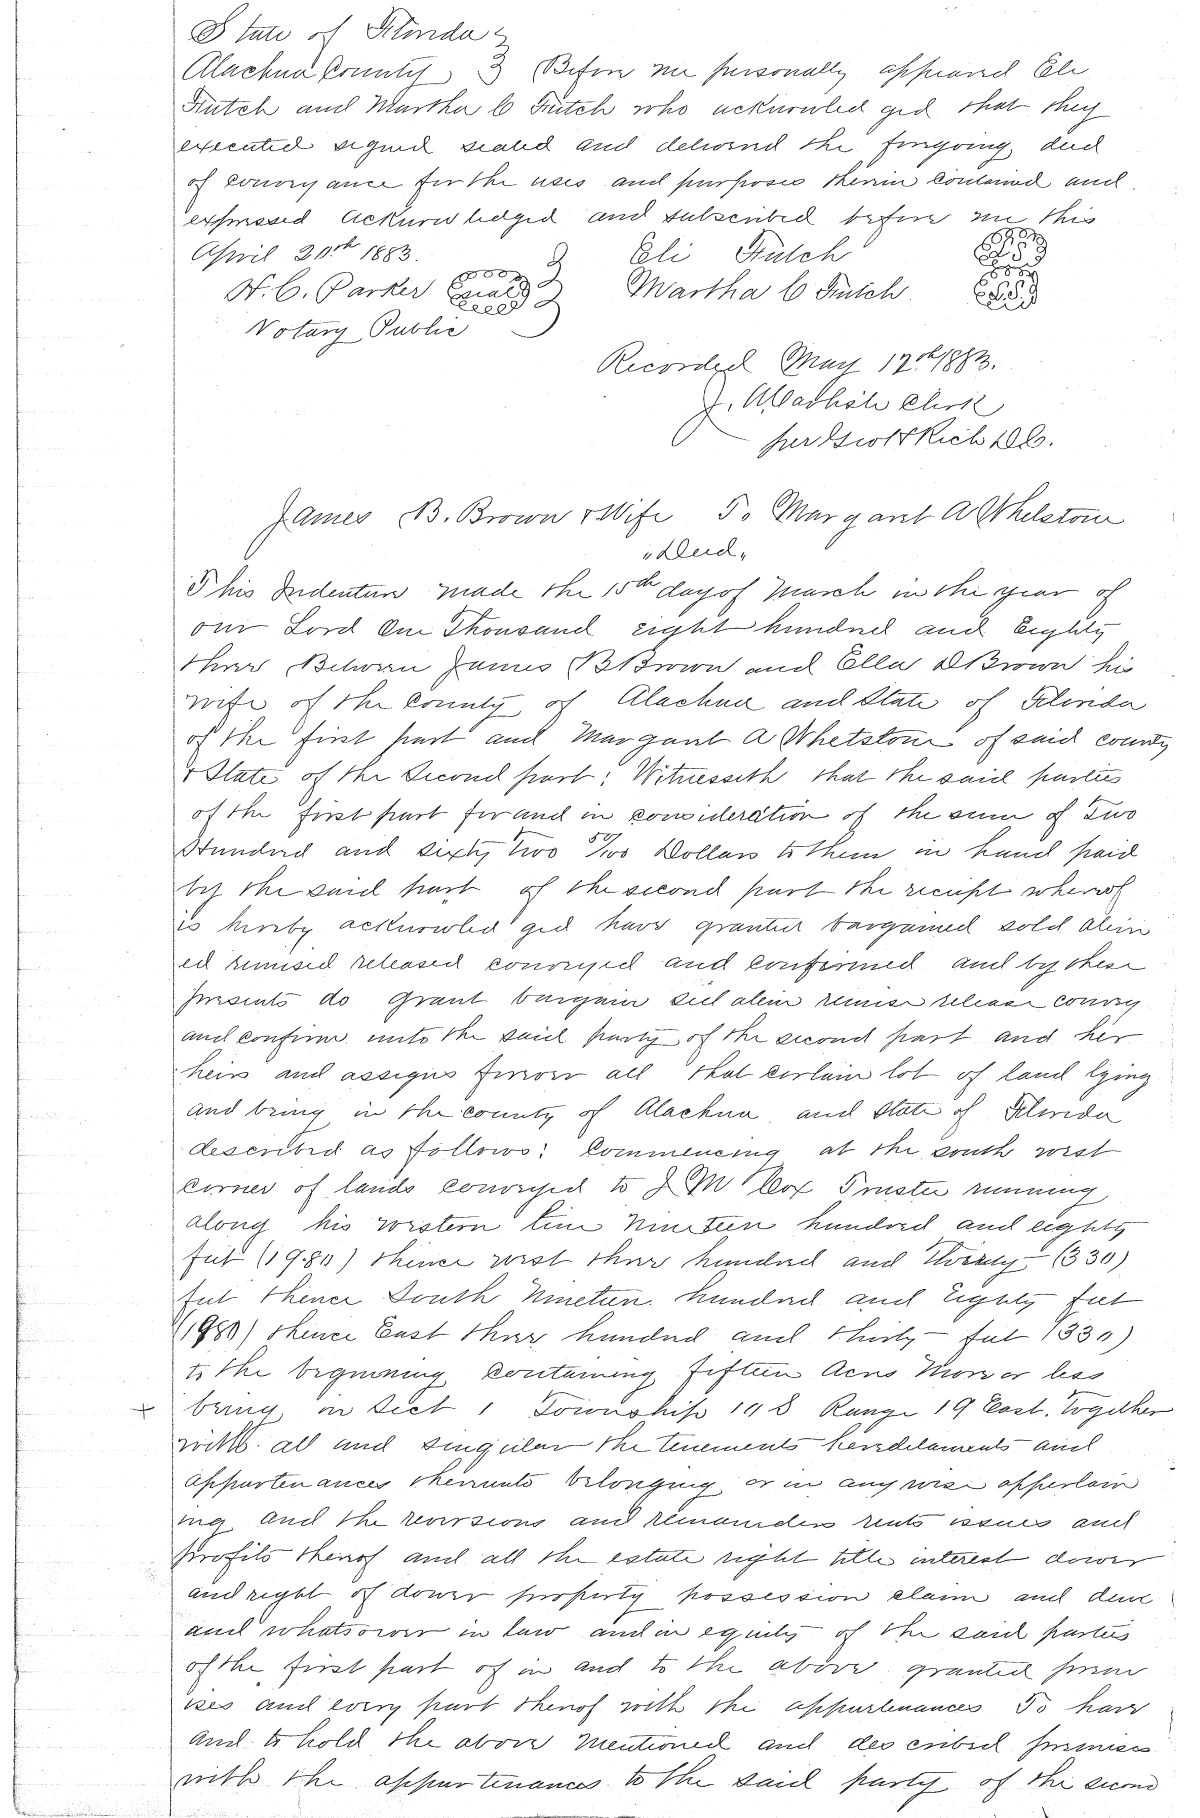 State of Florida
Alachua County Before me personally appeared Eli
Futch and Martha C Futch who acknowledged that they
executed signed sealed and delivered the foregoing deed
of conveyance for the uses and purposes therein contained and
expressed acknowledged and subscribed before me this
April 20th 1883. Eli Futch L.S.
H. C. Parker Seal Martha C Futch L.S.
Notary Public
Recorded May 17th 1883.
J. A. Carlisle Clerk
per Rich D.C.
James B. Brown & Wife To Margaret A Whetstone
"Deed"
This Indenture made the 15th day of March in the year of
our Lord One Thousand eight hundred and Eighty
three Between James B Brown and Ella D Brown his
wife of the County of Alachua and State of Florida
of the first part and Margaret A Whetstone of said county
& State of the Second part: Witnesseth that the said parties
of the first part for and in consideration of the sum of Two
Hundred and sixty two 50/100 Dollars to them in hand paid
by the said part of the second part the receipt whereof
is hereby acknowledged have granted bargained sold alien
ed remised released conveyed and confirmed and by these
presents do grant bargain sell alein remise release convey
and confirm unto the said party of the second part and her
heirs and assigns forever all that certain lot of land lying
and being in the county of Alachua and State of Florida
described as follows: Commencing at the south west
corner of lands conveyed to J M Cox Trustee running
along his western line nineteen hundred and eighty
feet (1980) thence west three hundred and thirty (330)
feet thence South Nineteen hundred and Eighty feet
(1980) thence East three hundred and thirty feet (330)
to the beginning containing fifteen Acres More or less
+ being in Sect 1 Township 10 S Range 19 East. Together
with all and singular the tenements heredetaments and
appurtenances thereunto belonging or in any wise appertain
ing and the reversions and remainders rents issues and
profits thereof and all the estate right title interest dower
and right of dower property possession claim and dem
and whatsoever in law and in equity of the said parties
of the first part of in and to the above granted prem
ises and every part thereof with the appurtenances To have
And to hold the above mentioned and described premises
with the appurtenances to the said party of the second